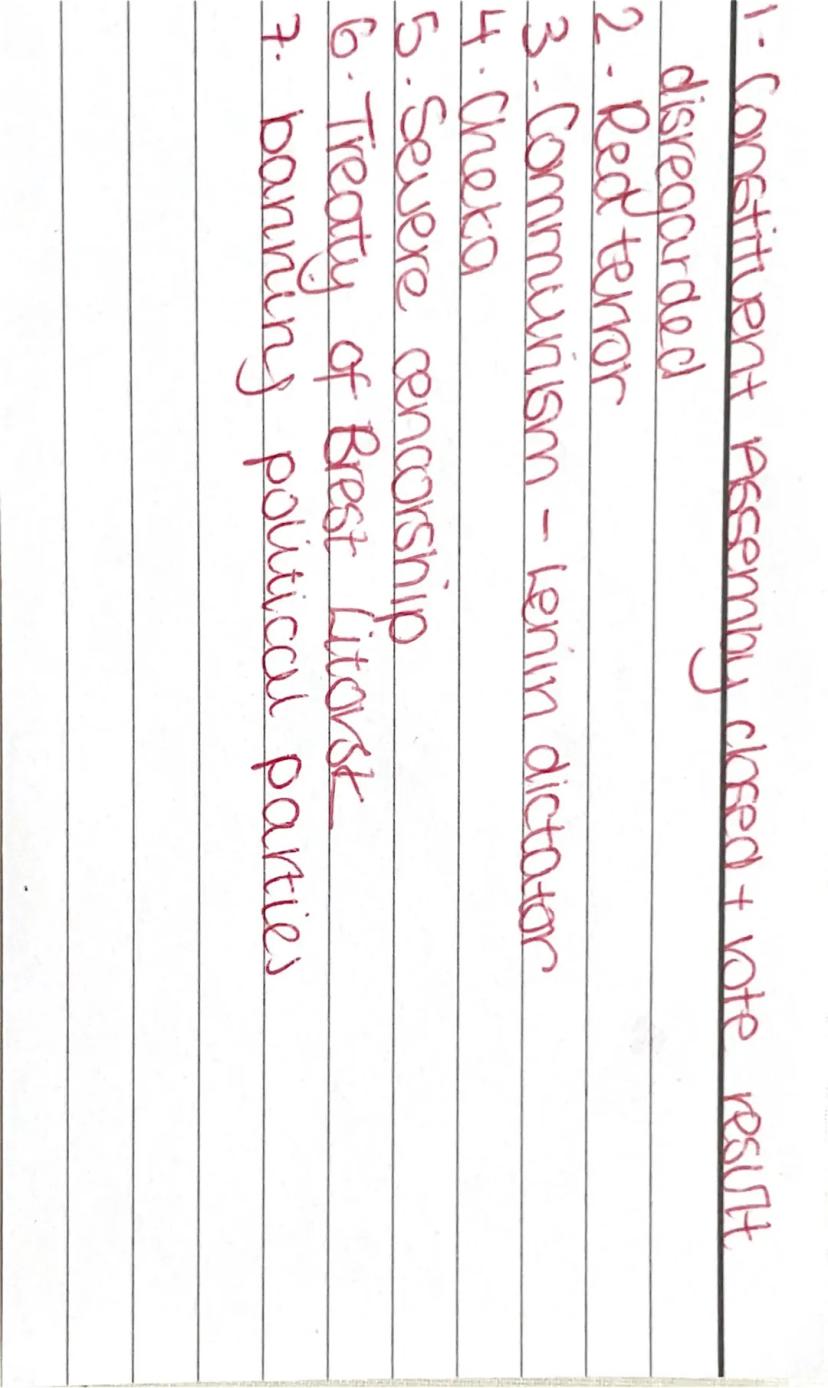 1- Constituent Assembly closed + vote result
disregarded
2- Red terror
3- Communism - Lenin dictator
4. Cheka
5. Severe cencorship
6. Treaty of Brest Litovst
7. banning political parties